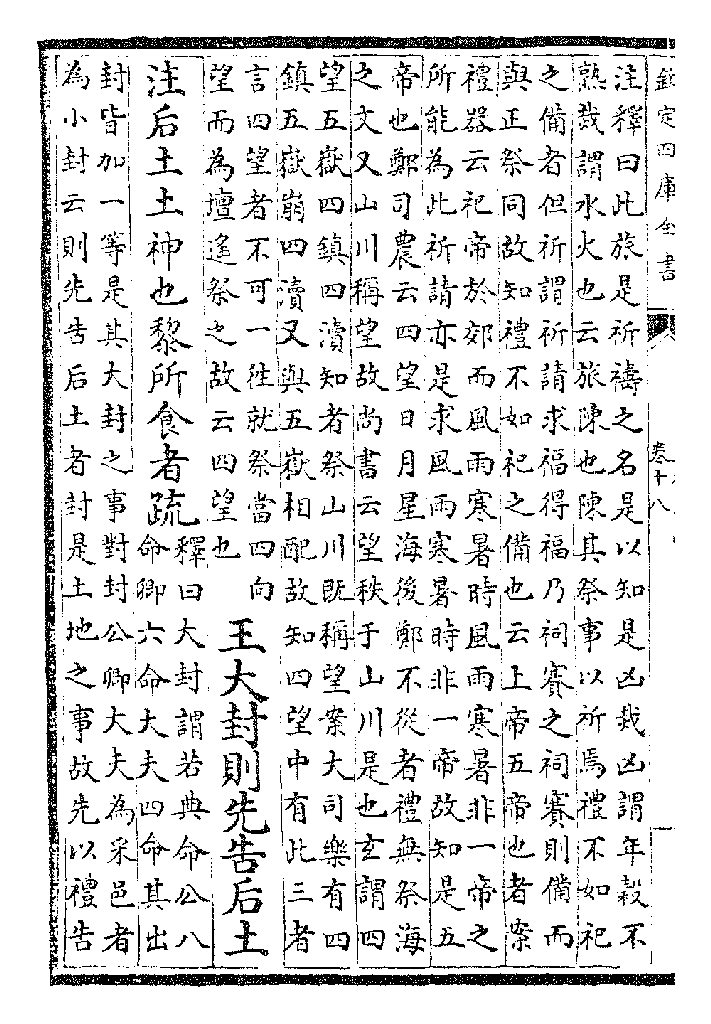 欽定四庫全書
卷十八
注釋曰此旅是祈禱之名是以知是凶烖凶謂年穀不
熟烖謂水火也云旅陳也陳其祭事以祈焉禮不如祀
之備者但祈謂祈請求福得福乃祠賽之祠賽則備而
與正祭同故知禮不如祀之備也云上帝五帝也者案
禮器云祀帝於郊而風雨寒暑時風雨寒暑非一帝之
所能為此祈請亦是求風雨寒暑時非一帝故知是五
帝也鄭司農云四望日月星海後鄭不從者禮無祭海
之文又山川稱望故尚書云望秩于山川是也玄謂四
望五嶽四鎮四瀆知者祭山川既稱望案大司樂有四
鎮五嶽崩四瀆又與五嶽相配故知四望中有此三者
言四望者不可一往就祭當四向
望而為壇遙祭之故云四望也
王大封則先告后土
注后土土神也黎所食者疏
釋曰大封謂若典命公八
命卿六命大夫四命其出
封皆加一等是其大封之事對封公卿大夫為采邑者
為小封云則先告后土者封是土地之事故先以禮告